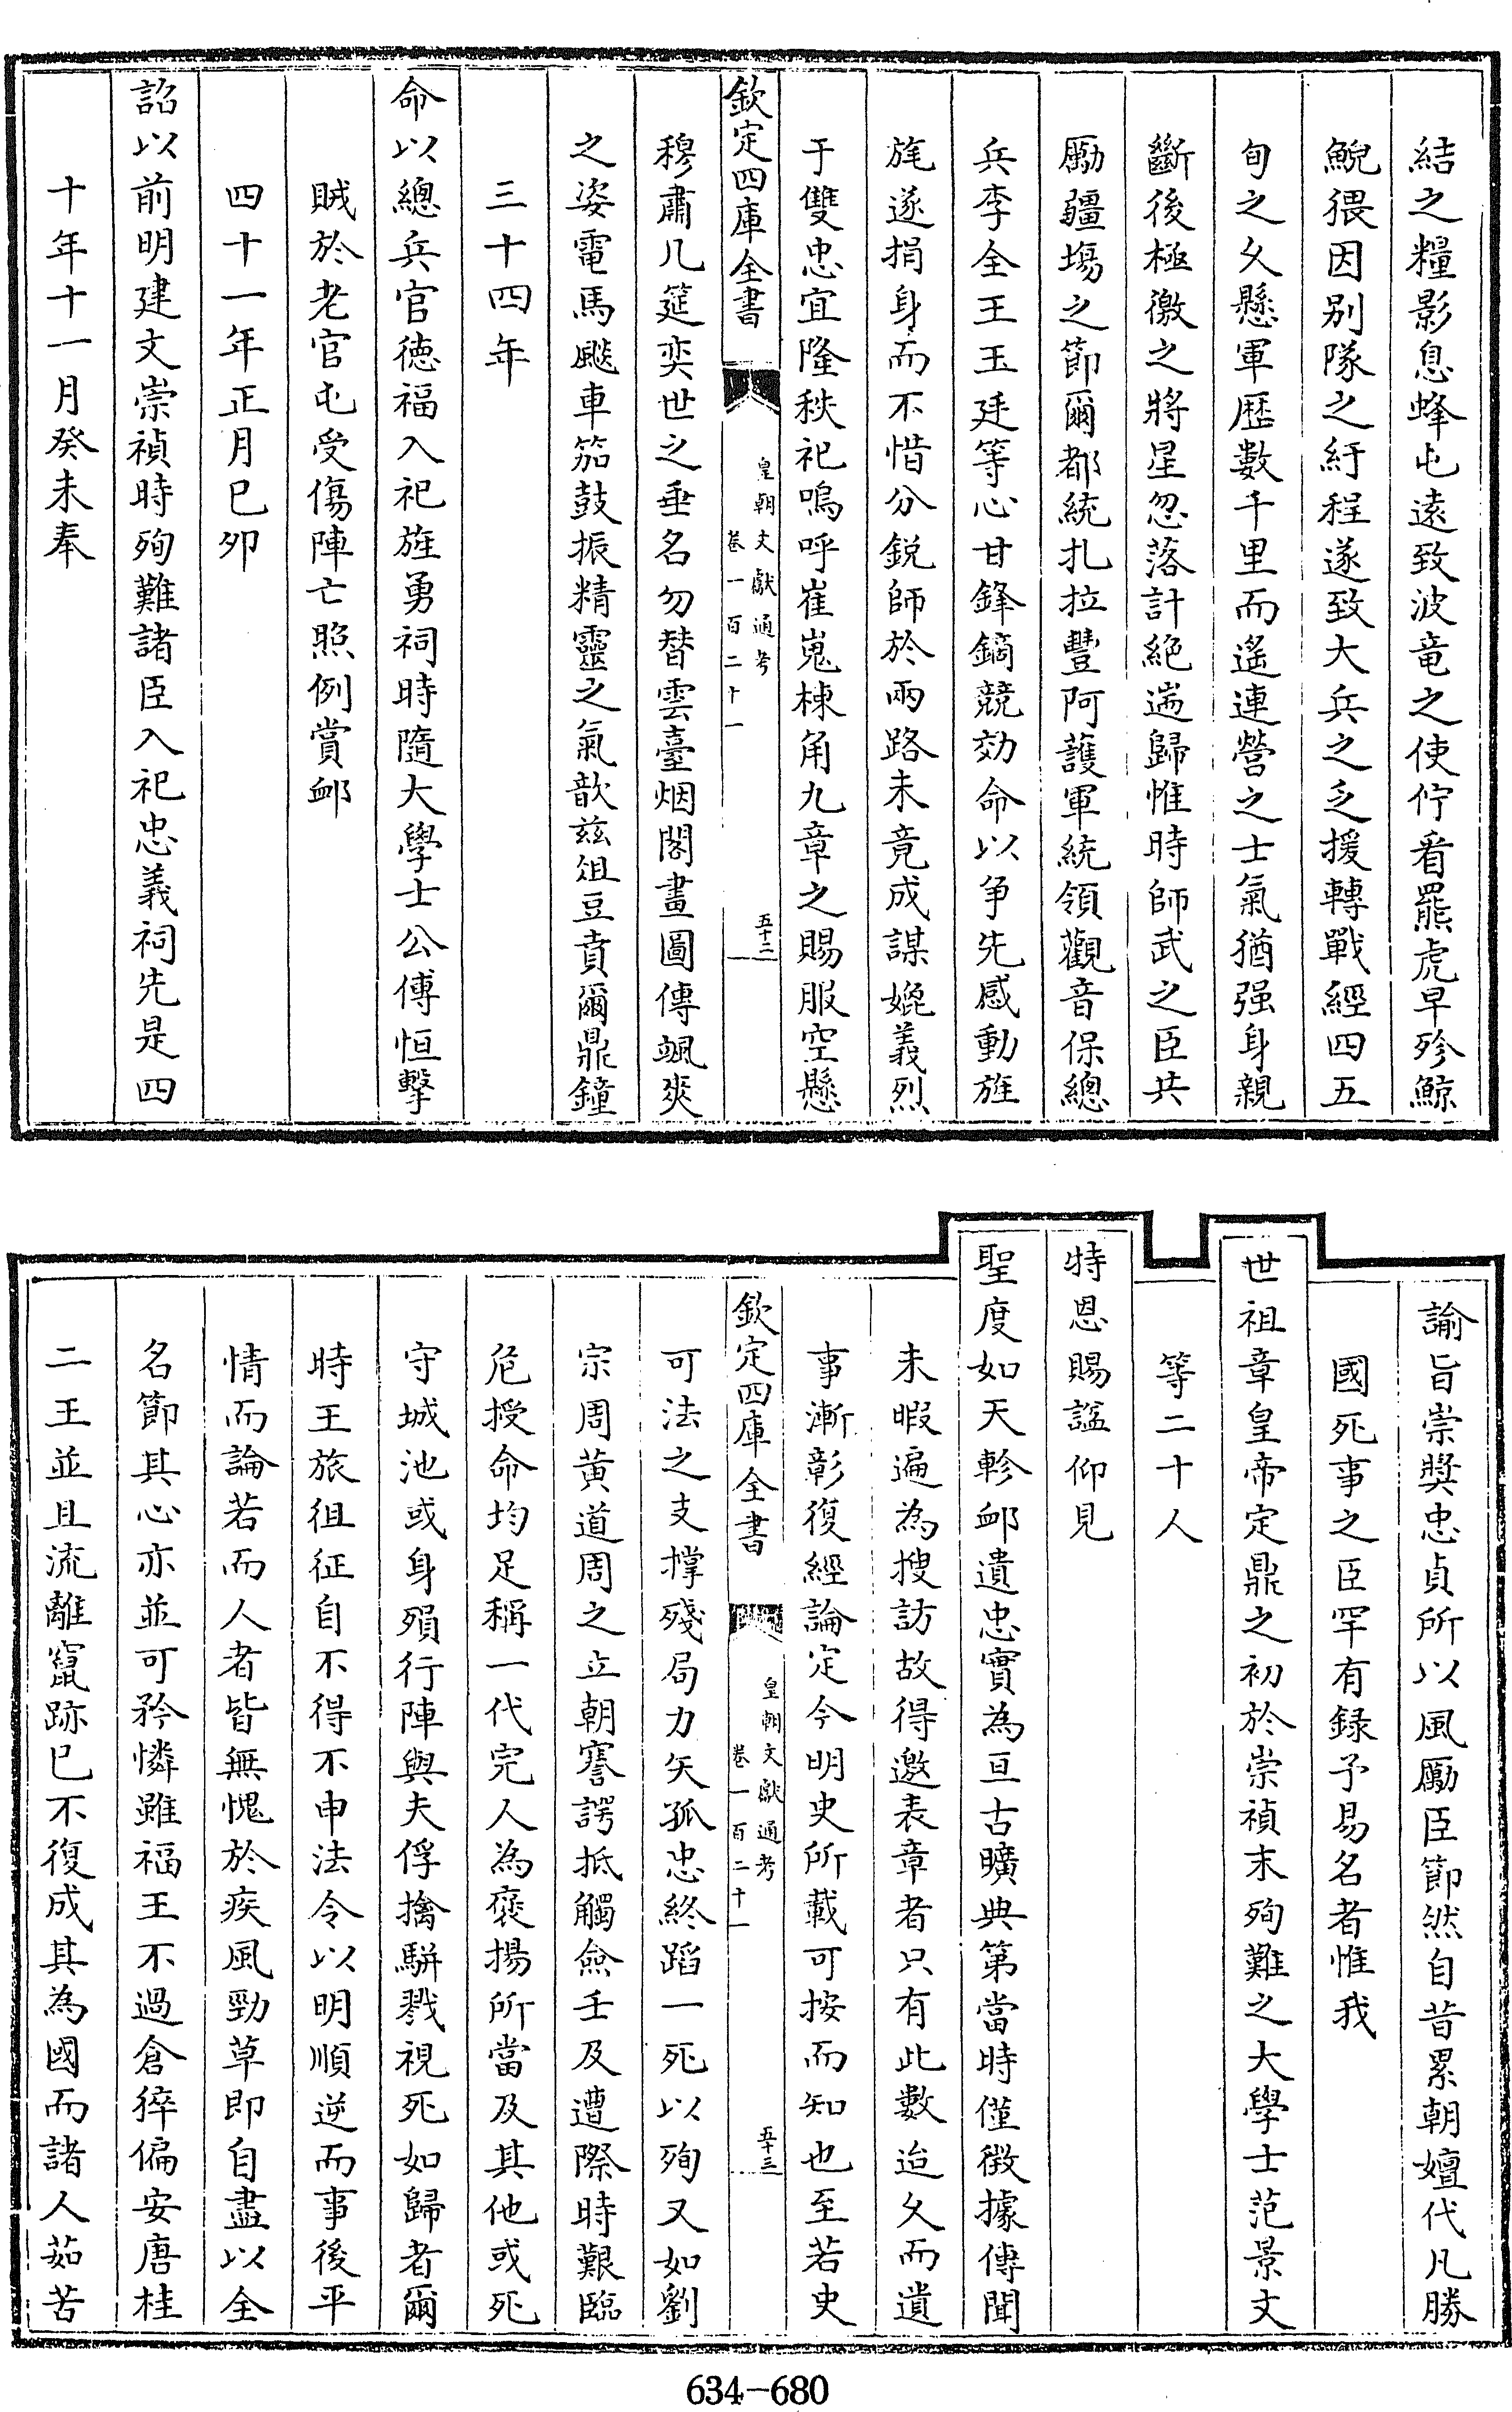 結之糧影息蜂屯遠致波竜之使佇看羆虎早殄鯨
鯢猥因别隊之紆程遂致大兵之乏援轉戰經四五
旬之久懸軍歴數千里而遙連營之士氣猶强身親
斷後極徼之將星忽落計絶遄歸惟時師武之臣共
勵疆塲之節爾都統扎拉豐阿護軍統領觀音保總
兵李全王玉廷等心甘鋒鏑競効命以争先感動旌
旄遂捐身而不惜分鋭師於兩路未竟成謀媲義烈
于雙忠宜隆秩祀嗚呼崔嵬棟角九章之賜服空懸
欽定四庫全書
皇朝文獻通考
卷一百二十一
五十二
穆肅几筵奕世之垂名勿替雲臺烟閣畫圖傳颯爽
之姿電馬飈車笳鼓振精靈之氣歆兹俎豆賁爾鼎鐘
三十四年
命以總兵官德福入祀旌勇祠時隨大學士公傅恒擊
賊於老官屯受傷陣亡照例賞卹
四十一年正月巳夘
詔以前明建文崇禎時殉難諸臣入祀忠義祠先是四
十年十一月癸未奉
諭旨崇獎忠貞所以風勵臣節然自昔累朝嬗代凡勝
國死事之臣罕有録予易名者惟我
世祖章皇帝定鼎之初於崇禎末殉難之大學士范景文
等二十人
特恩賜諡仰見
聖度如天軫卹遺忠實為亘古曠典第當時僅徴據傳聞
未暇遍為搜訪故得邀表章者只有此數迨久而遺
事漸彰復經論定今明史所載可按而知也至若史
欽定四庫全書
皇朝文獻通考
卷一百二十一
五十三
可法之支撑殘局力矢孤忠終蹈一死以殉又如劉
宗周黄道周之立朝謇諤抵觸僉壬及遭際時艱臨
危授命均足稱一代完人為褒揚所當及其他或死
守城池或身殞行陣與夫俘擒駢戮視死如歸者爾
時王旅徂征自不得不申法令以明順逆而事後平
情而論若而人者皆無愧於疾風勁草即自盡以全
名節其心亦並可矜憐雖福王不過倉猝偏安唐桂
二王並且流離竄跡巳不復成其為國而諸人茹苦
634-680